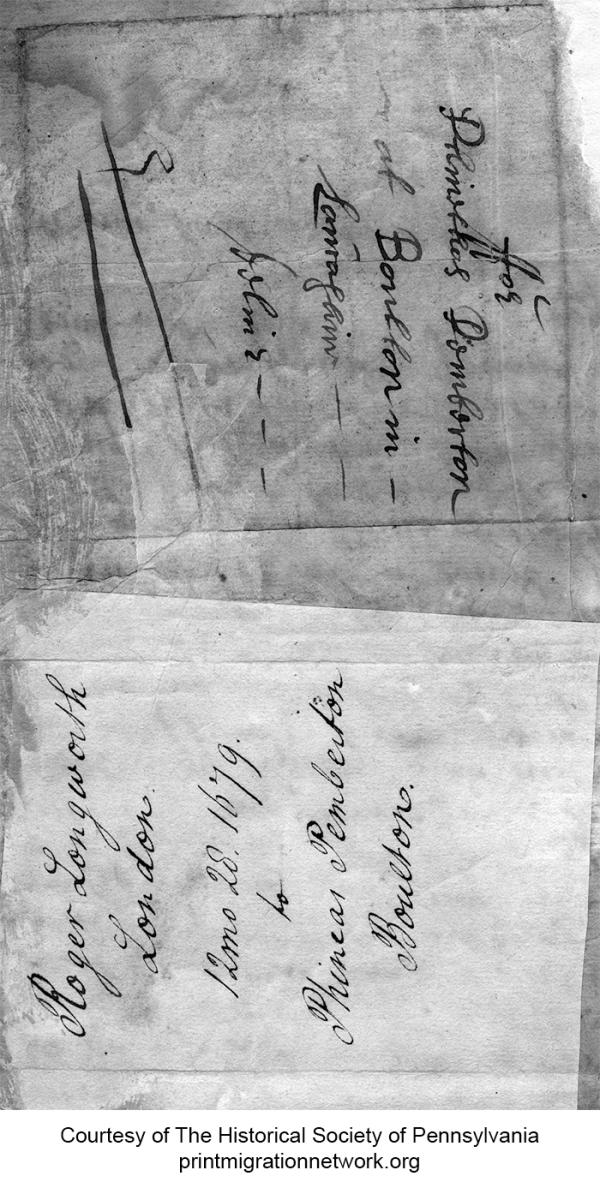 ffor
Phinehas Pemberton
at Boulton in –
Roger Longworth
London.
12mo 28. 1679.
to
Phineas Pemberton
Boulton.
Courtesy of The Historical Society of Pennsylvania
printmigrationnetwork.org